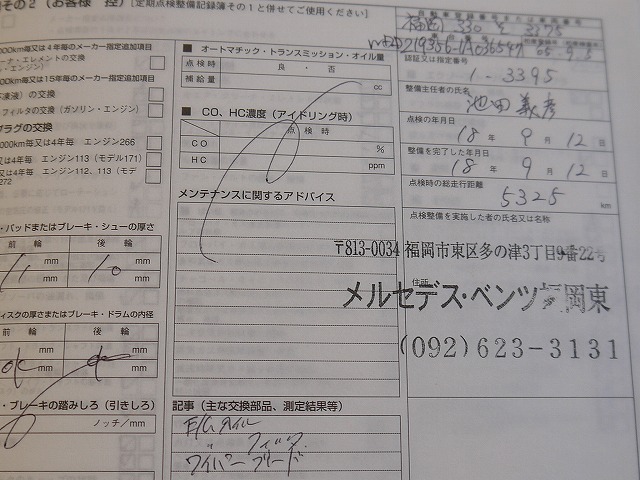 その2（お客様 控）[定期点検整備記録簿その1と併せてご使用ください]
000km毎又は4年毎のメーカー指定追加項目
ーナ・エレメントの交換
ン・エンジン）
000km毎又は15年毎のメーカー指定追加項目
凍液）の交換
フィルタの交換（ガソリン・エンジン）
プラグの交換
000km毎又は4年毎 エンジン266
又は4年毎 エンジン113（モデル171）
又は4年毎 エンジン112、113（モデ
272
・パッドまたはブレーキ・シューの厚さ
前 輪 後 輪
11 mm 10 mm
mm mm
ィスクの厚さまたはブレーキ・ドラムの内径
前 輪 後 輪
ok mm ok mm
mm mm
・ブレーキの踏みしろ（引きしろ）
ノッチ／mm
■ オートマチック・トランスミッション・オイル量
点検時 良 ・ 否
補給量 cc
■ CO、HC濃度（アイドリング時）
点 検 時
CO %
HC ppm
メンテナンスに関するアドバイス
記事（主な交換部品、測定結果等）
E/Gオイル
〃 フィルタ
ワイパーブレード
福岡 330 そ 3375
認証又は指定番号
1-3395
整備主任者の氏名
池田 義彦
点検の年月日
18 年 9 月 12 日
整備を完了した年月日
18 年 9 月 12 日
点検時の総走行距離
5325 km
点検整備を実施した者の氏名又は名称
〒813-0034 福岡市東区多の津3丁目9番22号
住所
メルセデス・ベンツ福岡東
(092)623-3131